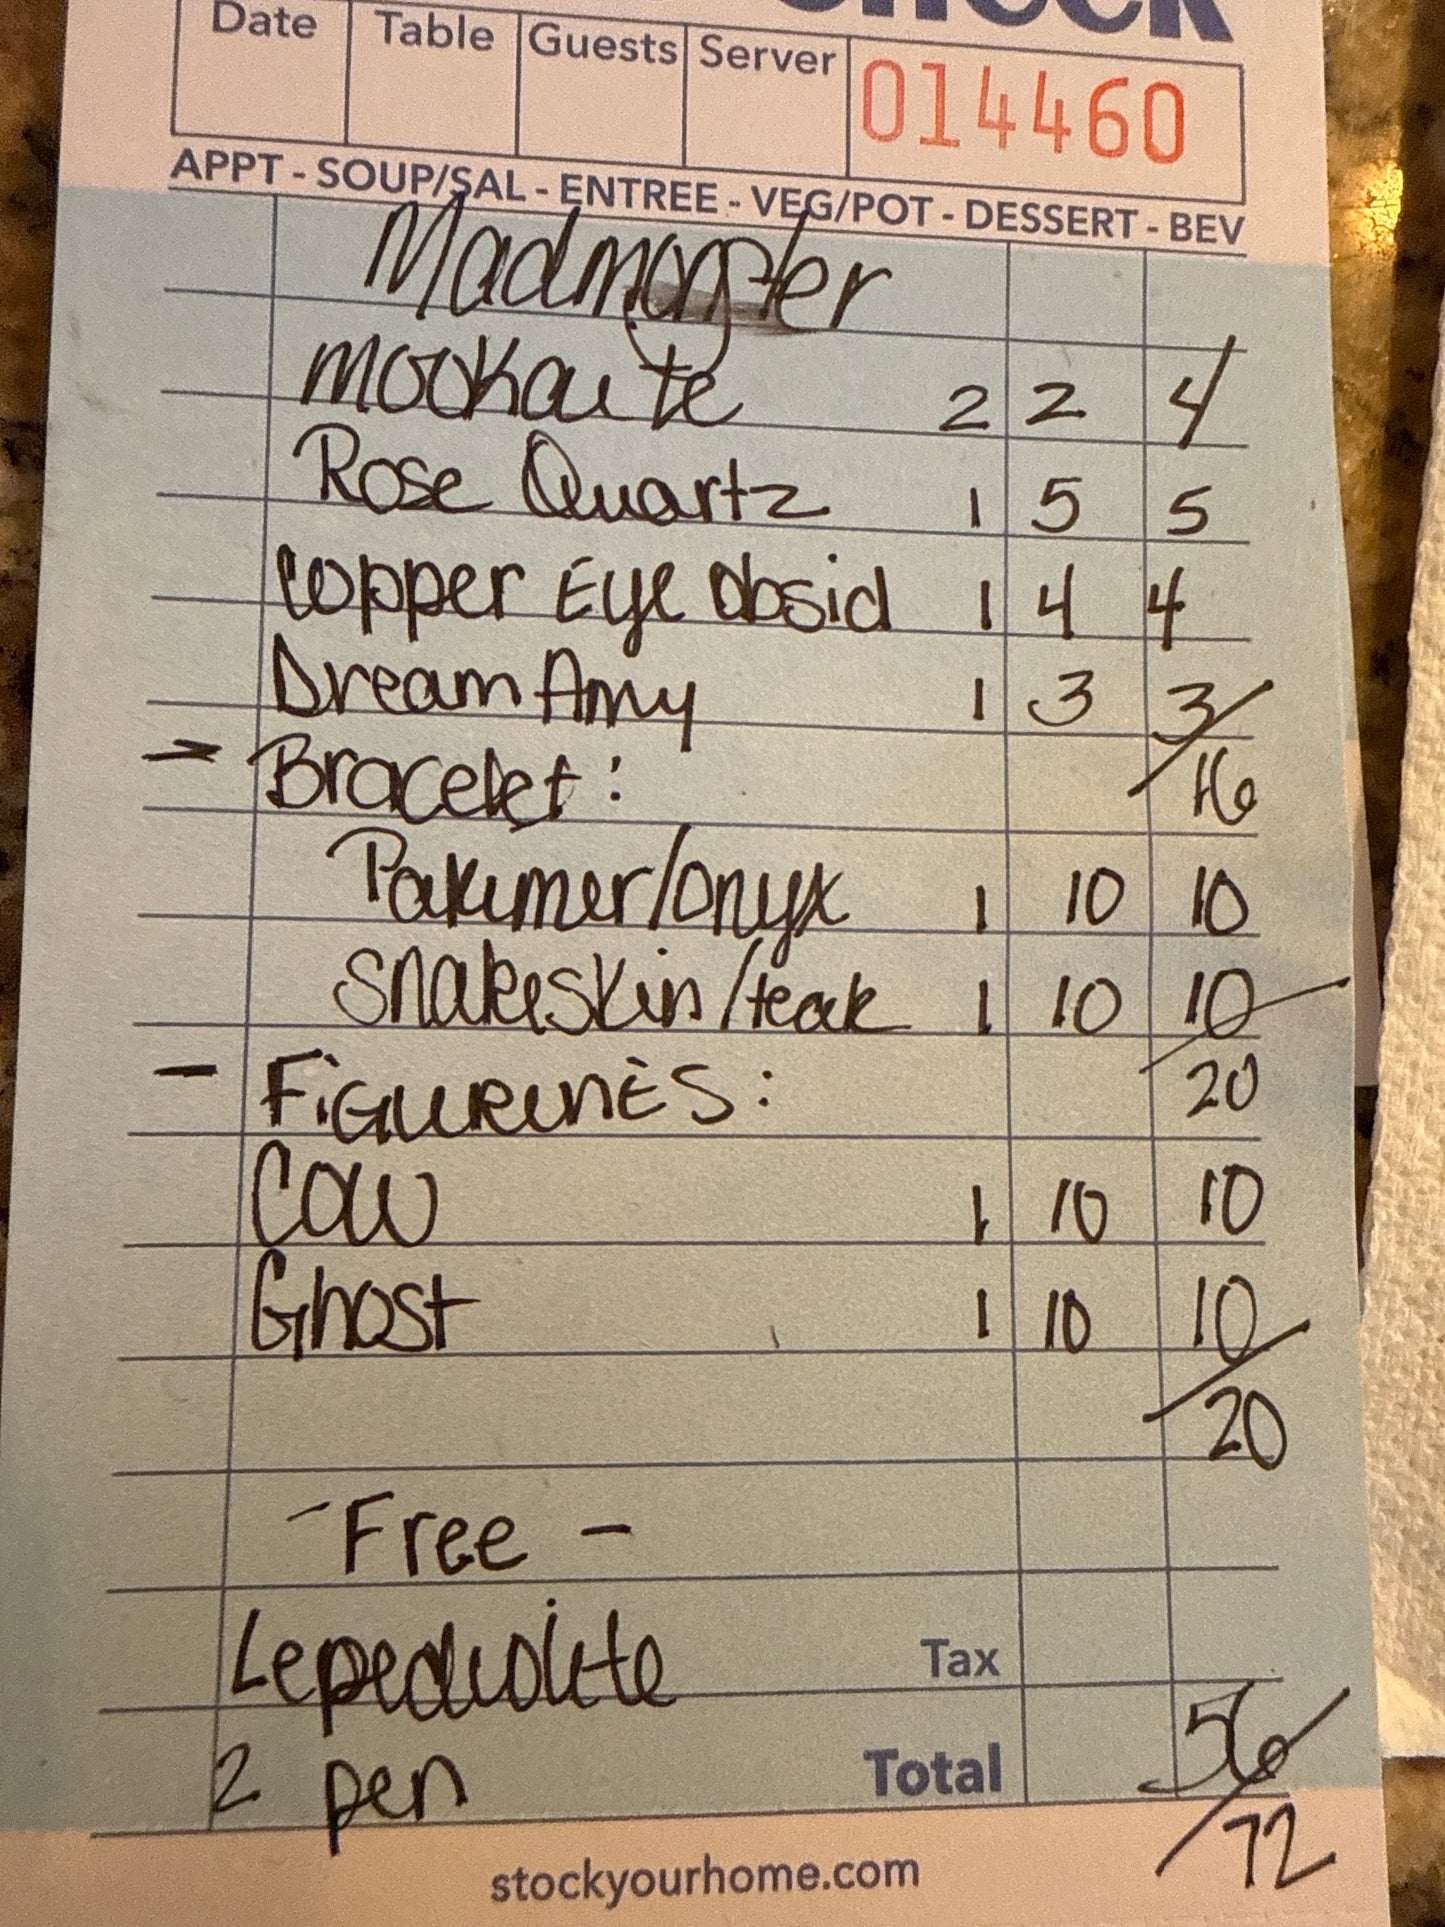 Date Table Guests Server 014460
APPT - SOUP/SAL - ENTREE - VEG/POT - DESSERT - BEV
Madmonster
Mookaite 2 2 4
Rose Quartz 1 5 5
Copper Eye Obsid 1 4 4
Dream Amy 1 3 3
- Bracelet: 16
Pakimer/Onyx 1 10 10
Snakeskin/teak 1 10 10
20
- FiGURiNES:
Cow 1 10 10
Ghost 1 10 10
20
- Free -
Lepediolite Tax
56
2 pen Total
72
stockyourhome.com